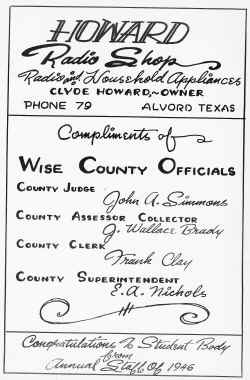 HOWARD
Radio Shop
Radio and Household Appliances
CLYDE HOWARD,~OWNER
PHONE 79 ALVORD TEXAS
Compliments of
WISE COUNTY OFFICIALS
COUNTY JUDGE
John A. Simmons
COUNTY ASSESSOR COLLECTOR
J. Wallace Brady
COUNTY CLERK
Frank Clay
COUNTY SUPERINTENDENT
E.A. Nichols
Congratulations To Student Body
from
Annual Staff Of 1946